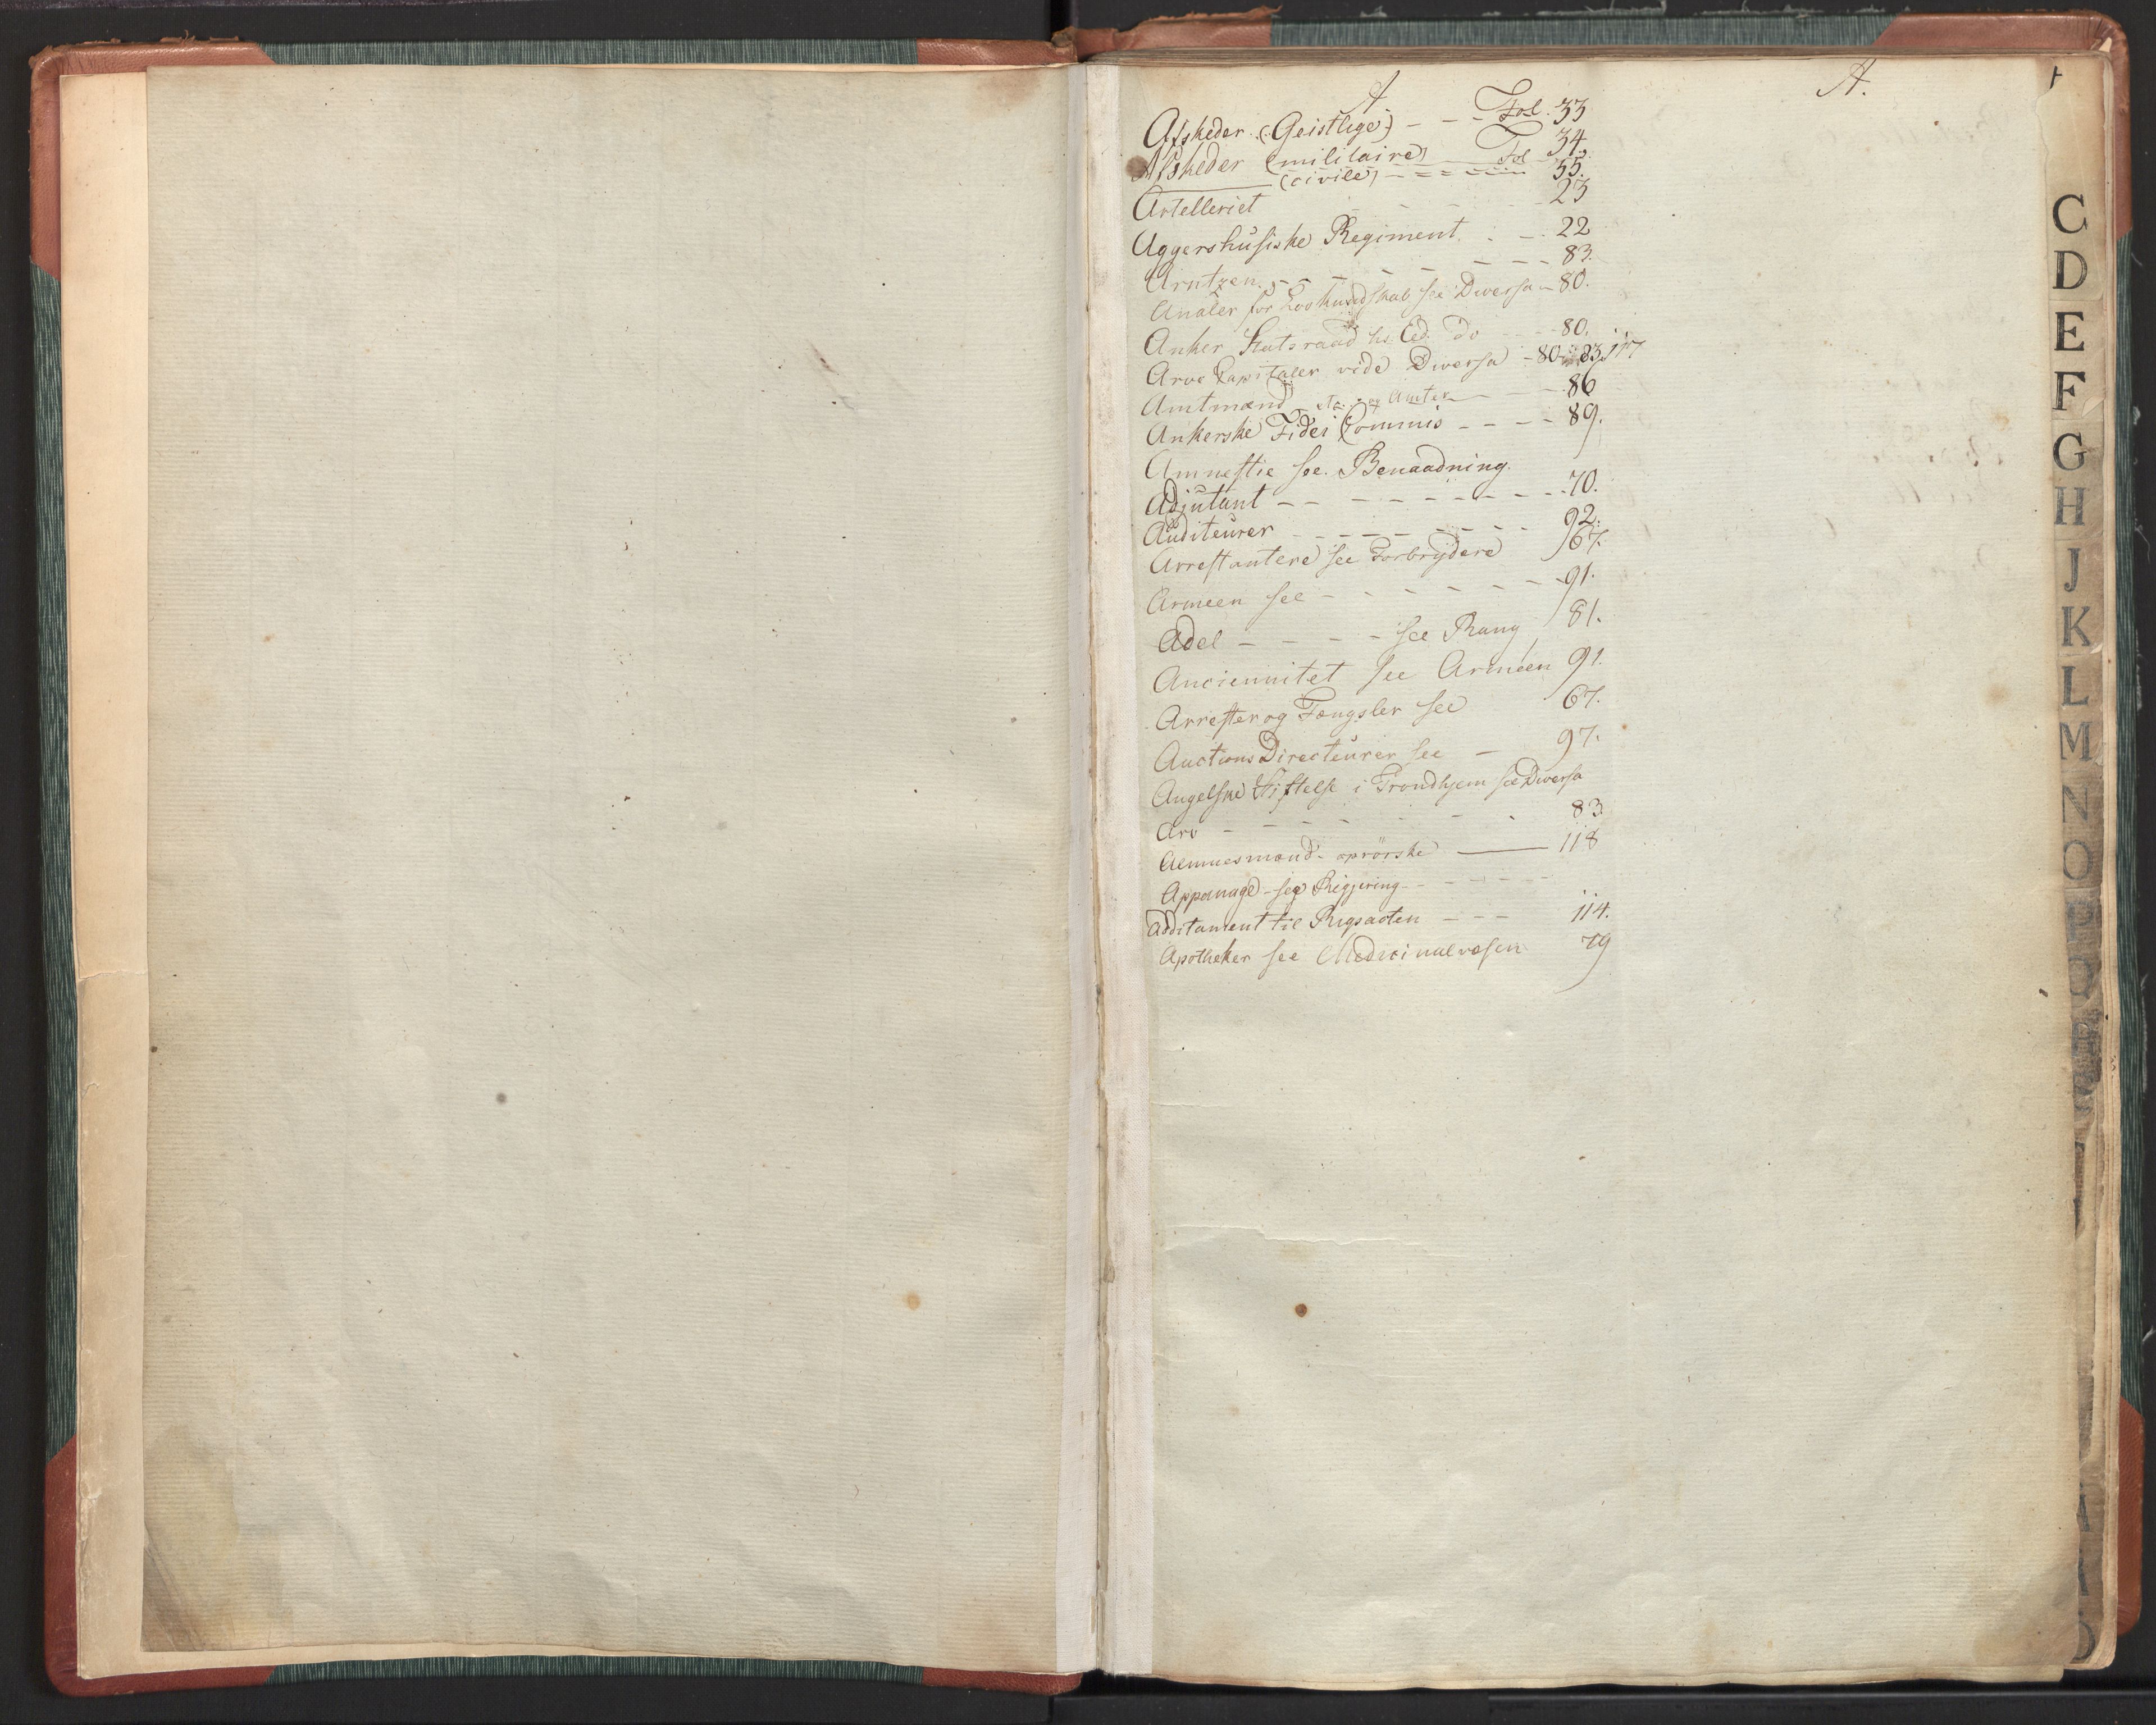 A.
A.
Afskeder (Geistlige) - - - Fol. 33
Afskeder (militaire) Fol 34,
(civile) - - - - 35.
Artelleriet - - - - 23
Aggershusiske Regiment - - 22
Arntzen - - - - - - 83.
Analer for Lovkundskab see Diversa - 80.
Anker Statsraad hs: Ed. do - - - 80.
Arve Capitaler vide Diversa - 80 83, 117
Amtmænd og Amter - 86
Ankerske Fidei Commis - - - - 89.
Amnestie see Benaadning.
Adjutant - - - - - - - - - 70.
Auditeurer - - - - - - - - 92.
Arrestantere see Forbrydere 67.
Armeen see - - - - - - - 91.
Adel - - - - - see Rang 81.
Anciennitet see Armeen 91.
Arrester og Fængsler see 67.
Auctions Directeurer see - 97.
Angelske Stiftelse i Trondhjem see Diversa
Arv - - - - - - - 83.
Almuesmænd - oprørske - 118
Appanage - see Regjering - - - - -
Additament til Rigsacten - - - 114.
Apotheker see Medicinalvæsen 79
C
D
E
F
G
H
J
K
L
M
N
O
P
Q
R